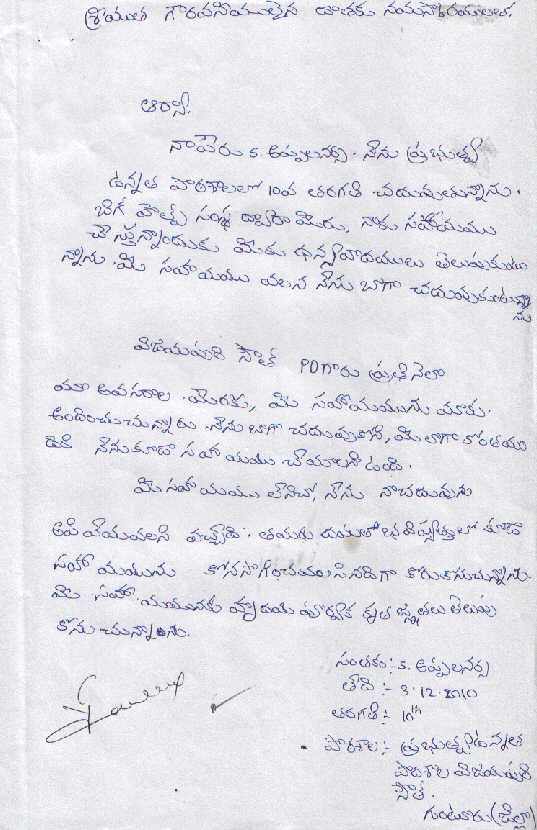 శ్రీయుత గౌరవనీయులైన దాతకు నమస్కారములు.
ఆర్యా,
నాపేరు S. అప్పలనర్స. నేను ప్రభుత్వ
ఉన్నత పాఠశాలలో 10వ తరగతి చదువుతున్నాను.
బిగ్ హెల్ప్ సంస్థ ద్వారా మీరు, నాకు సహాయము
చేస్తున్నందుకు మీకు ధన్యవాదములు తెలుపుకుంటు
న్నాను. మీ సహాయము వలన నేను బాగా చదువుకుంటున్నా
ను
విజయపురి సౌత్ PDగారు ప్రతి నెలా
మా అవసరాల మేరకు, మీ సహాయమును మాకు
అందించుచున్నారు. నేను బాగా చదువుకొని, మీ లాగా కొంతమం
దికి నేనుకూడా సహాయము చేయాలని ఉంది.
మీ సహాయము లేనిచో, నేను నాచదువును
ఆపివేయవలసి వచ్చేది. తమరు దయతో భవిష్యత్తులో కూడా
సహాయమును కొనసాగించవలసినదిగా కోరుకొనుచున్నాను.
మీ సహాయమునకు హృదయ పూర్వక కృతజ్ఞతలు తెలుపు
కొనుచున్నాను.
సంతకం: S. అప్పలనర్స
తేది :- 3.12.2010
తరగతి :- 10th
పాఠశాల :- ప్రభుత్వ ఉన్నత
పాఠశాల విజయపురి
సౌత్.
గుంటూరు (జిల్లా)